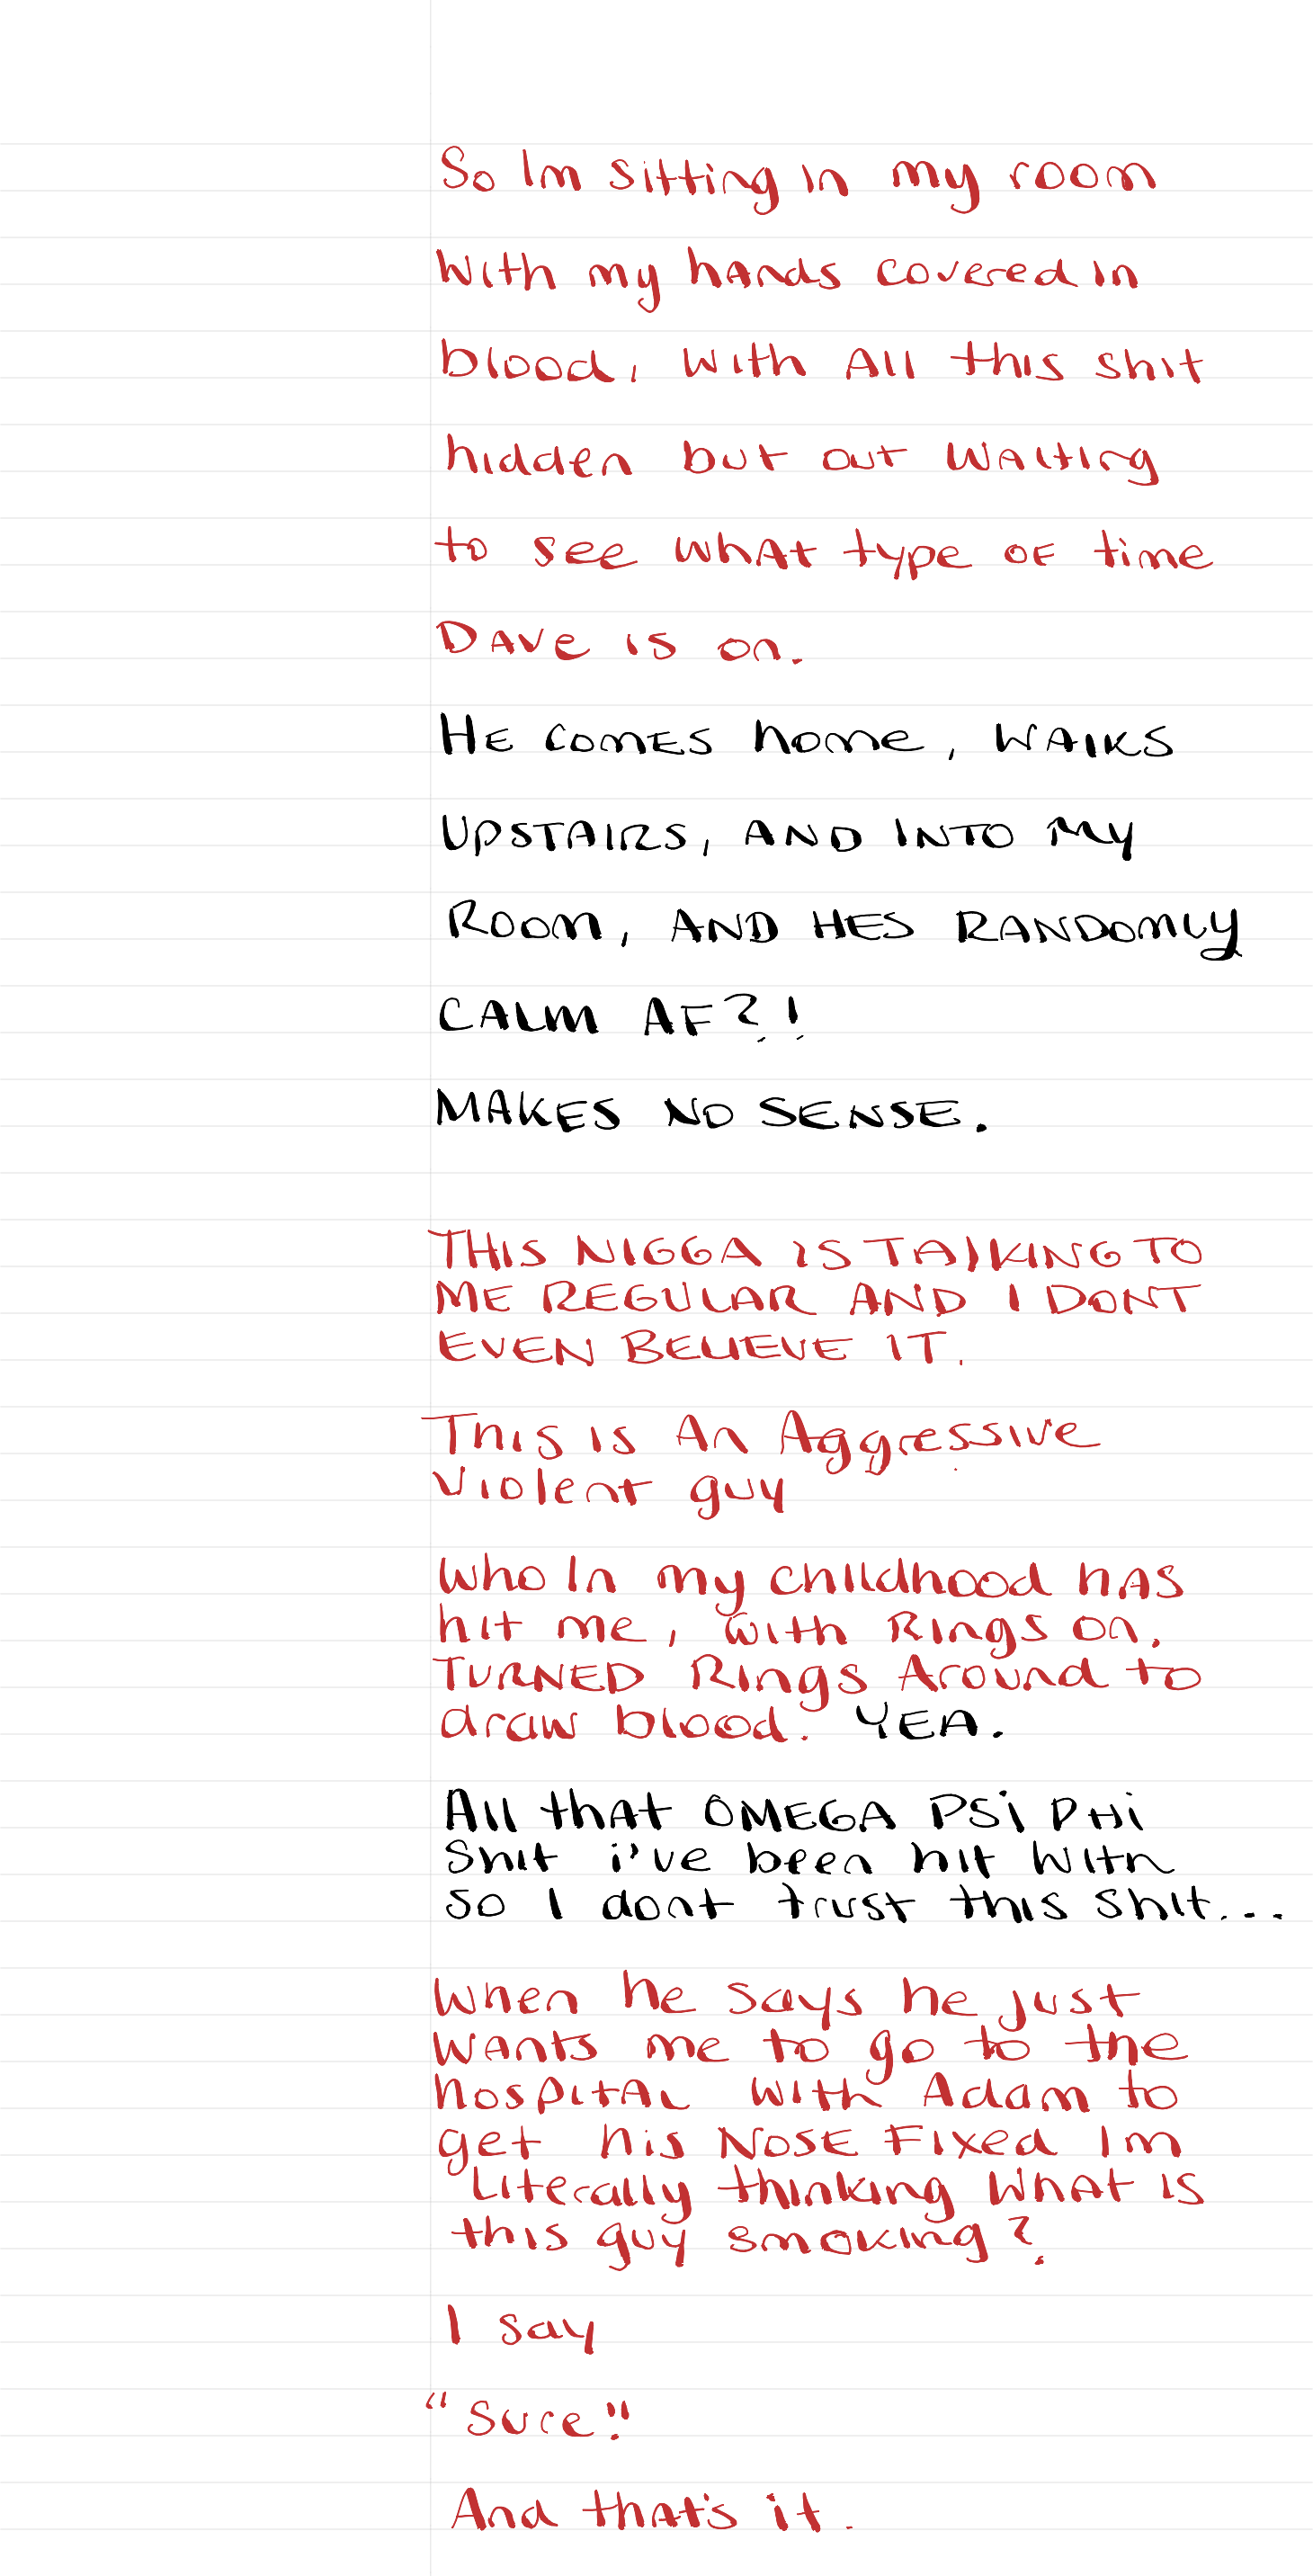 So Im sitting in my room
With my hands covered in
blood, With All this shit
hidden but out Waiting
to see what type of time
Dave is on.
HE COMES home, WAlKS
UPSTAIRS, AND INTO MY
ROOM, AND HES RANDOMLY
CALM AF?!
MAKES NO SENSE.
THIS NIGGA IS TAlKING TO
ME REGULAR AND I DONT
EVEN BELIEVE IT.
This is An Aggressive
Violent guy
Who In my childhood hAS
hit me, with Rings on.
TURNED Rings Around to
draw blood. YEA.
All that OMEGA PSi PHi
Shit i've been hit With
so I dont trust this shit...
When he says he just
Wants me to go to the
hospital With Adam to
get his NOSE Fixed Im
Literally thinking What is
this guy smoking?
I say
"Sure."
And that's it.